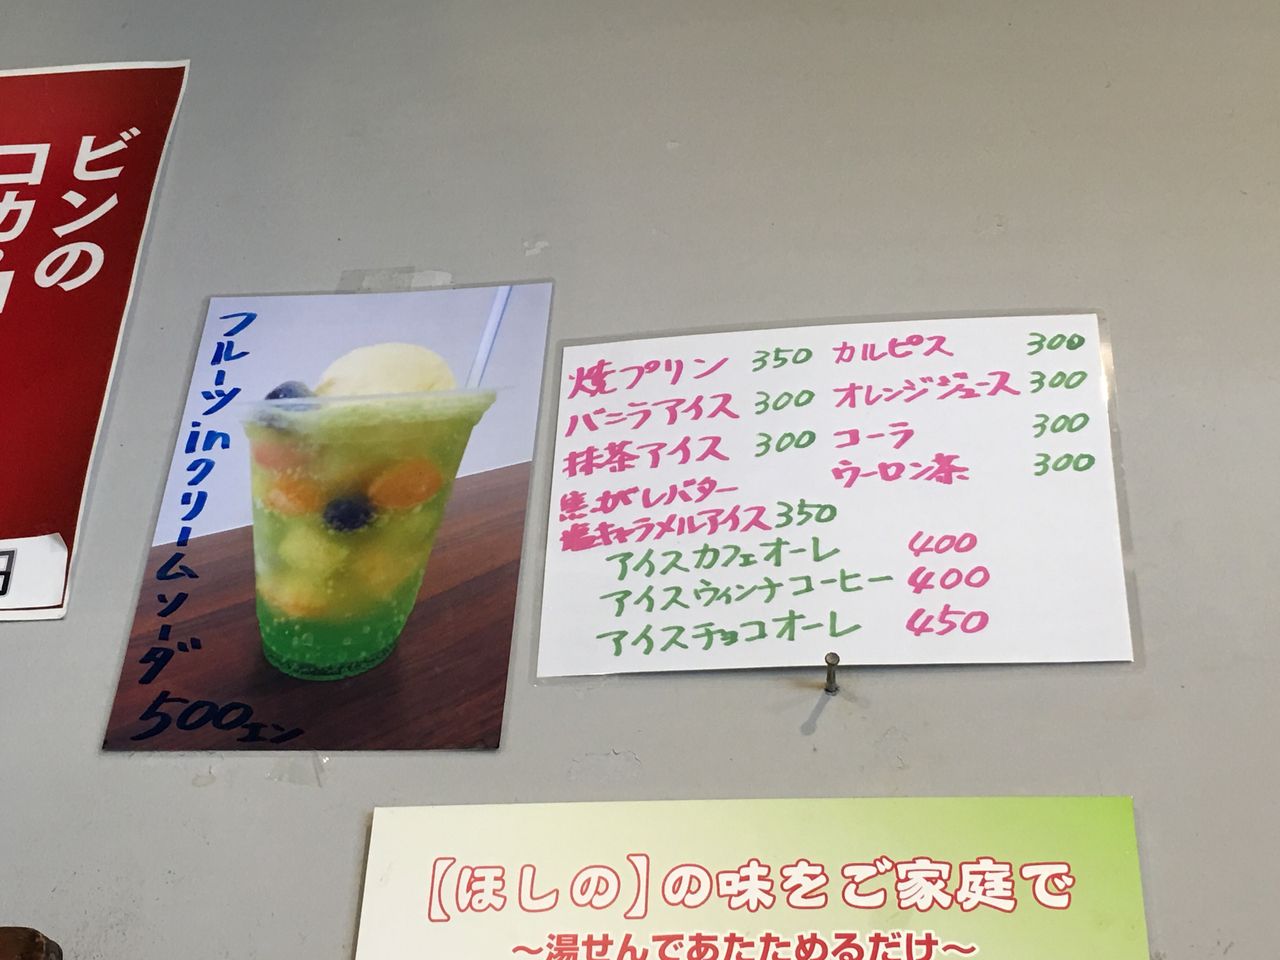 ビンの
コカ・コ
円
フルーツinクリームソーダ
500エン
焼プリン 350
バニラアイス 300
抹茶アイス 300
焦がしバター
塩キャラメルアイス 350
カルピス 300
オレンジジュース 300
コーラ 300
ウーロン茶 300
アイスカフェオーレ 400
アイスウィンナコーヒー 400
アイスチョコオーレ 450
【ほしの】の味をご家庭で
～湯せんであたためるだけ～